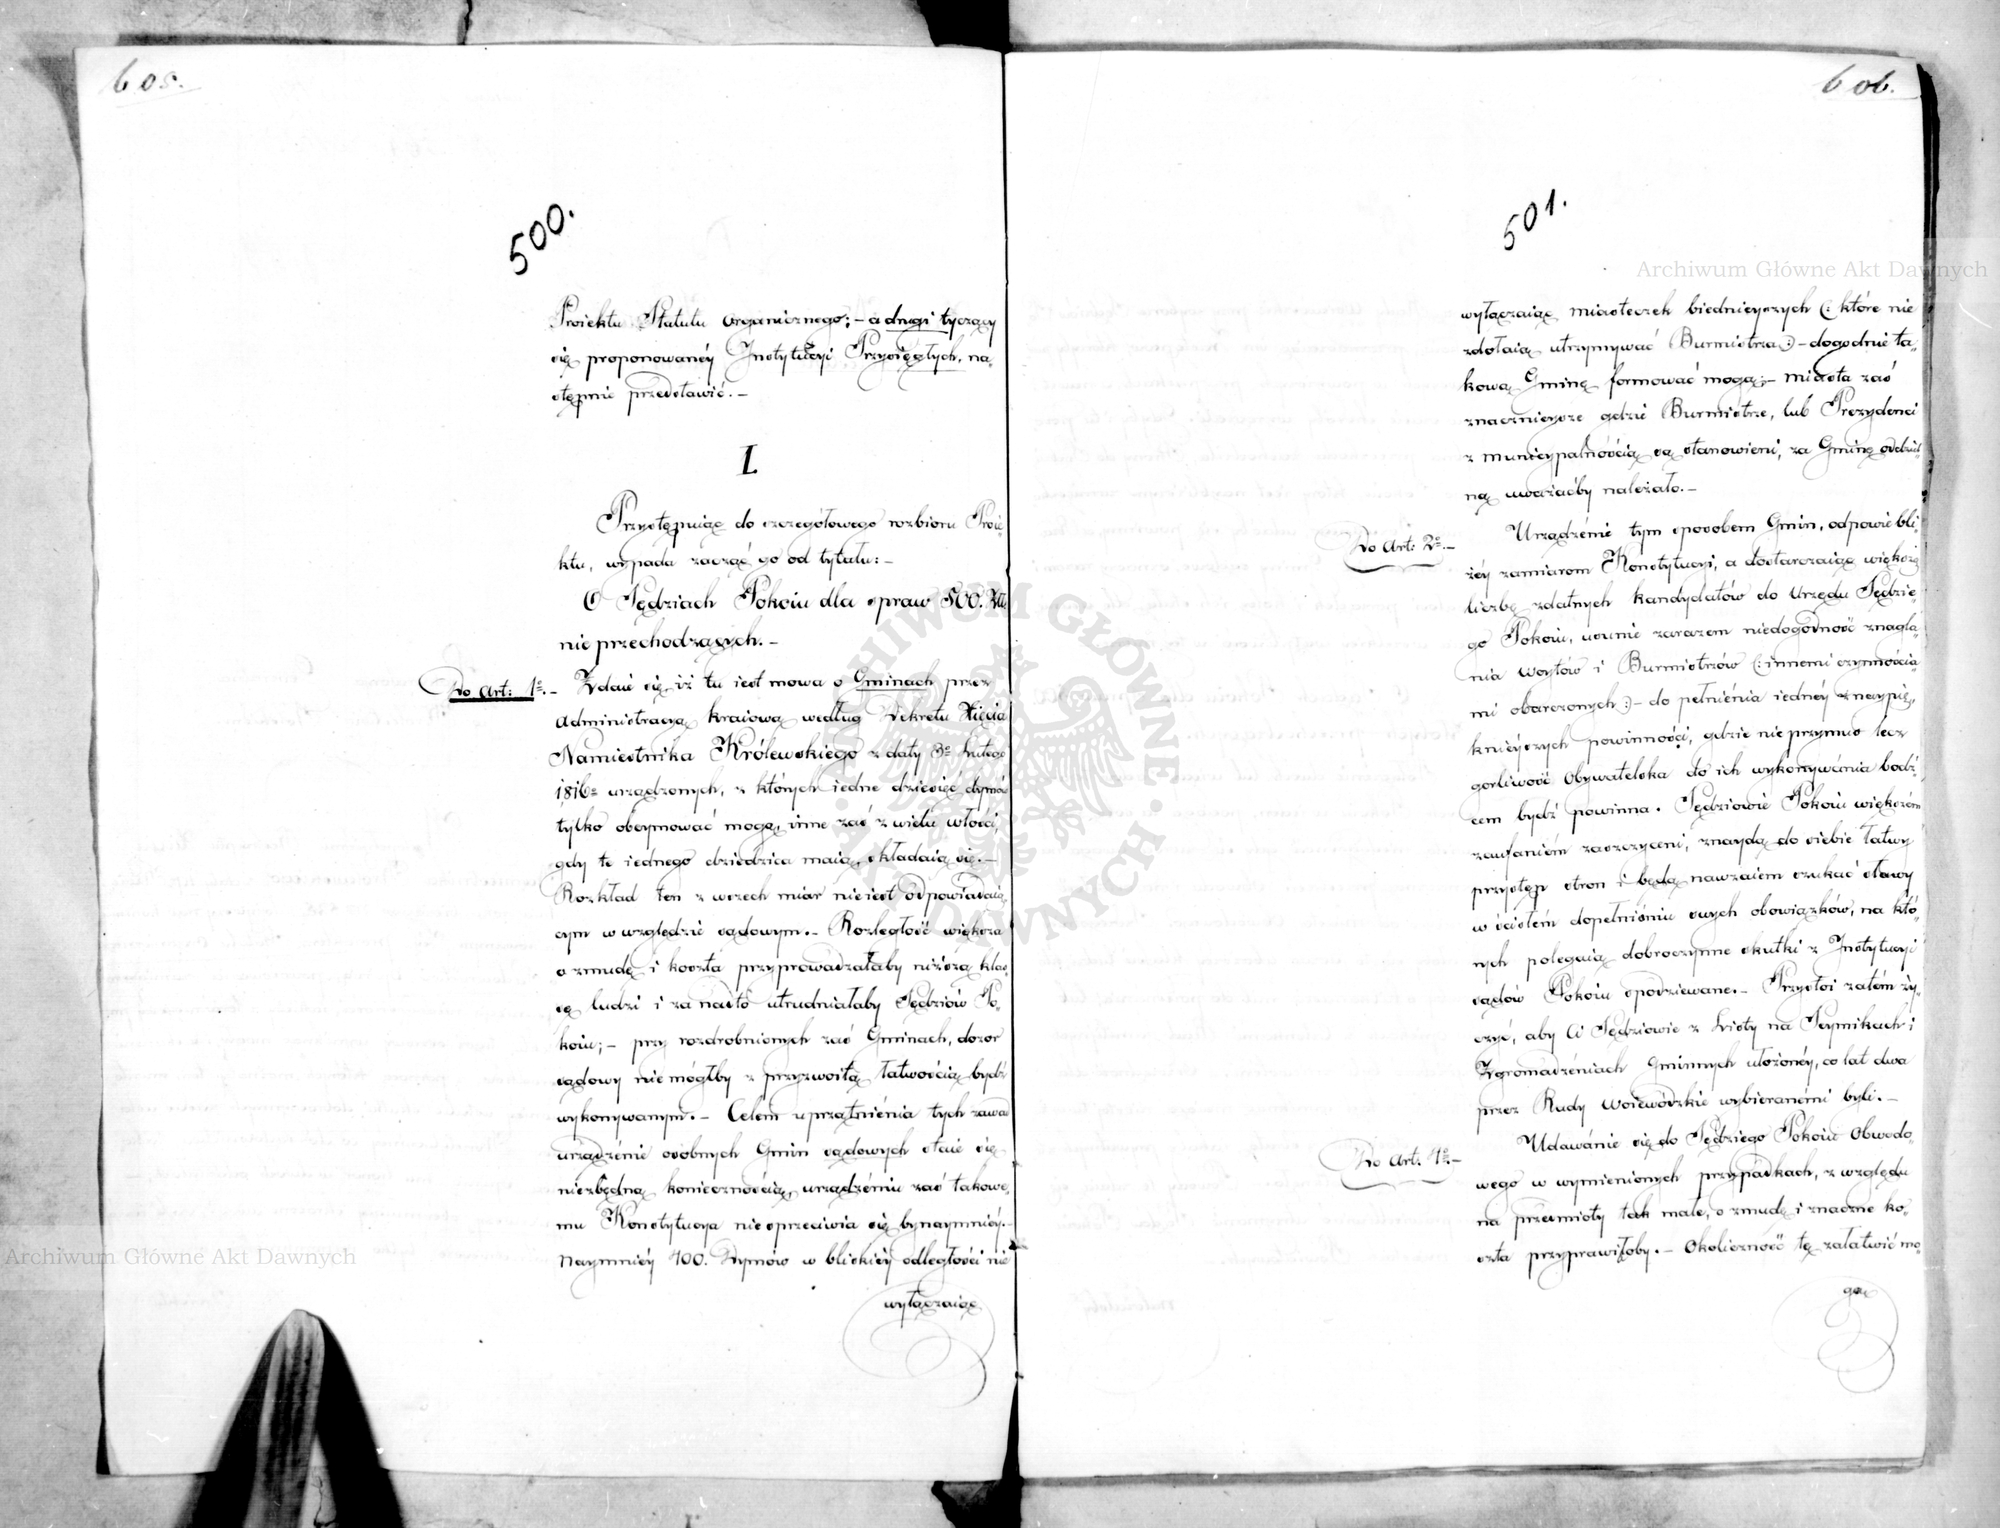 605.
500.
Proiektu Statutu organicznego; – a drugi tyczący
się proponowanéy Instytucyi Przysięgłych, na-
stępnie przedstawić. –
I.
Przystępuiąc do szczegółowego rozbioru Proie-
ktu, wypada zacząć go od tytułu: –
O Sędziach Pokoiu dla spraw 500. Złł.
nie przechodzących. –
Do Art: 1º. – Zdaie się iż tu iest mowa o Gminach przez
administracyą kraiową według Dekretu Xięcia
Namiestnika Królewskiego z daty 3º Lutego
1816º urządzonych, z których iedne dziesięć dymów
tylko obeymować mogą, inne zaś z wielu włości,
gdy te iednego dziedzica maią, składaią się. –
Rozkład ten z wszech miar nieiest odpowiadaią-
cym w względzie sądowym. – Rozległość większa
o zmudę i koszta przyprowadzałaby niższą klas-
sę ludzi i zanadto utrudniałaby Sędziów Po-
koiu; – przy rozdrobnionych zaś Gminach, dozor
sądowy nie mógłby z przyzwoitą łatwością bydź
wykonywanym. – Celem uprzątnienia tych zawad
urządzenie osobnych Gmin sądowych staie się
niezbędną koniecznością, urządzéniu zaś takowe-
mu Konstytucya nie sprzeciwia się bynaymniéy. –
Naymniéy 100. Dymów w bliskiéy odległości nie
wyłączaiąc
606.
501.
wyłączaiąc miasteczek biednieyszych (: które nie
zdołaią utrzymywać Burmistrza :) – dogodnie ta-
kową Gminę formować mogą; – miasta zaś
znacznieysze gdzie Burmistrze, lub Prezydenci
z municypalnością są stanowieni, za Gminę oddziel-
ną uważaćby należało. –
Do Art: 2º. – Urządzénie tym sposobem Gmin, odpowie bli-
żéy zamiarom Konstytucyi, a dostarczaiąc większą
liczbę zdatnych kandydatów do Urzędu Sędzie-
go Pokoiu, usunie zarazem niedogodność znagla-
nia Woytów i Burmistrzów (: innemi czynnościa-
mi obarczonych :) – do pełnienia iednéy z naypię-
knieyszych powinności, gdzie nie przymus lecz
gorliwość Obywatelska do ich wykonywánia bodź-
cem bydź powinna. Sędziowie Pokoiu większém
zaufaniém zaszczyceni, znaydą do siebie łatwy
przystęp stron i będą nawzaiem szukać sławy
w ścisłém dopełniéniu swych obowiązków, na któ-
rych polegaią dobroczynne skutki z Instytucyi
sądów Pokoiu spodziewane. – Przystoi zatém ży-
czyć, aby Ci Sędziowie z Listy na Seymikach i
Zgromadzéniach Gminnych ułożonéy, co lat dwa
przez Rady Woiewódzkie wybieranémi byli. –
Do Art. 4º. – Udawánie się do Sędziego Pokoiu Obwodo-
wego w wymienionych przypadkach, z względu
na przedmioty tak małe, o zmudę i znaczne ko-
szta przyprawiłoby. – Okoliczność tę załatwić mo-
gą
Archiwum Główne Akt Dawnych
Archiwum Główne Akt Dawnych
ARCHIWUM GŁÓWNE · AKT DAWNYCH ·